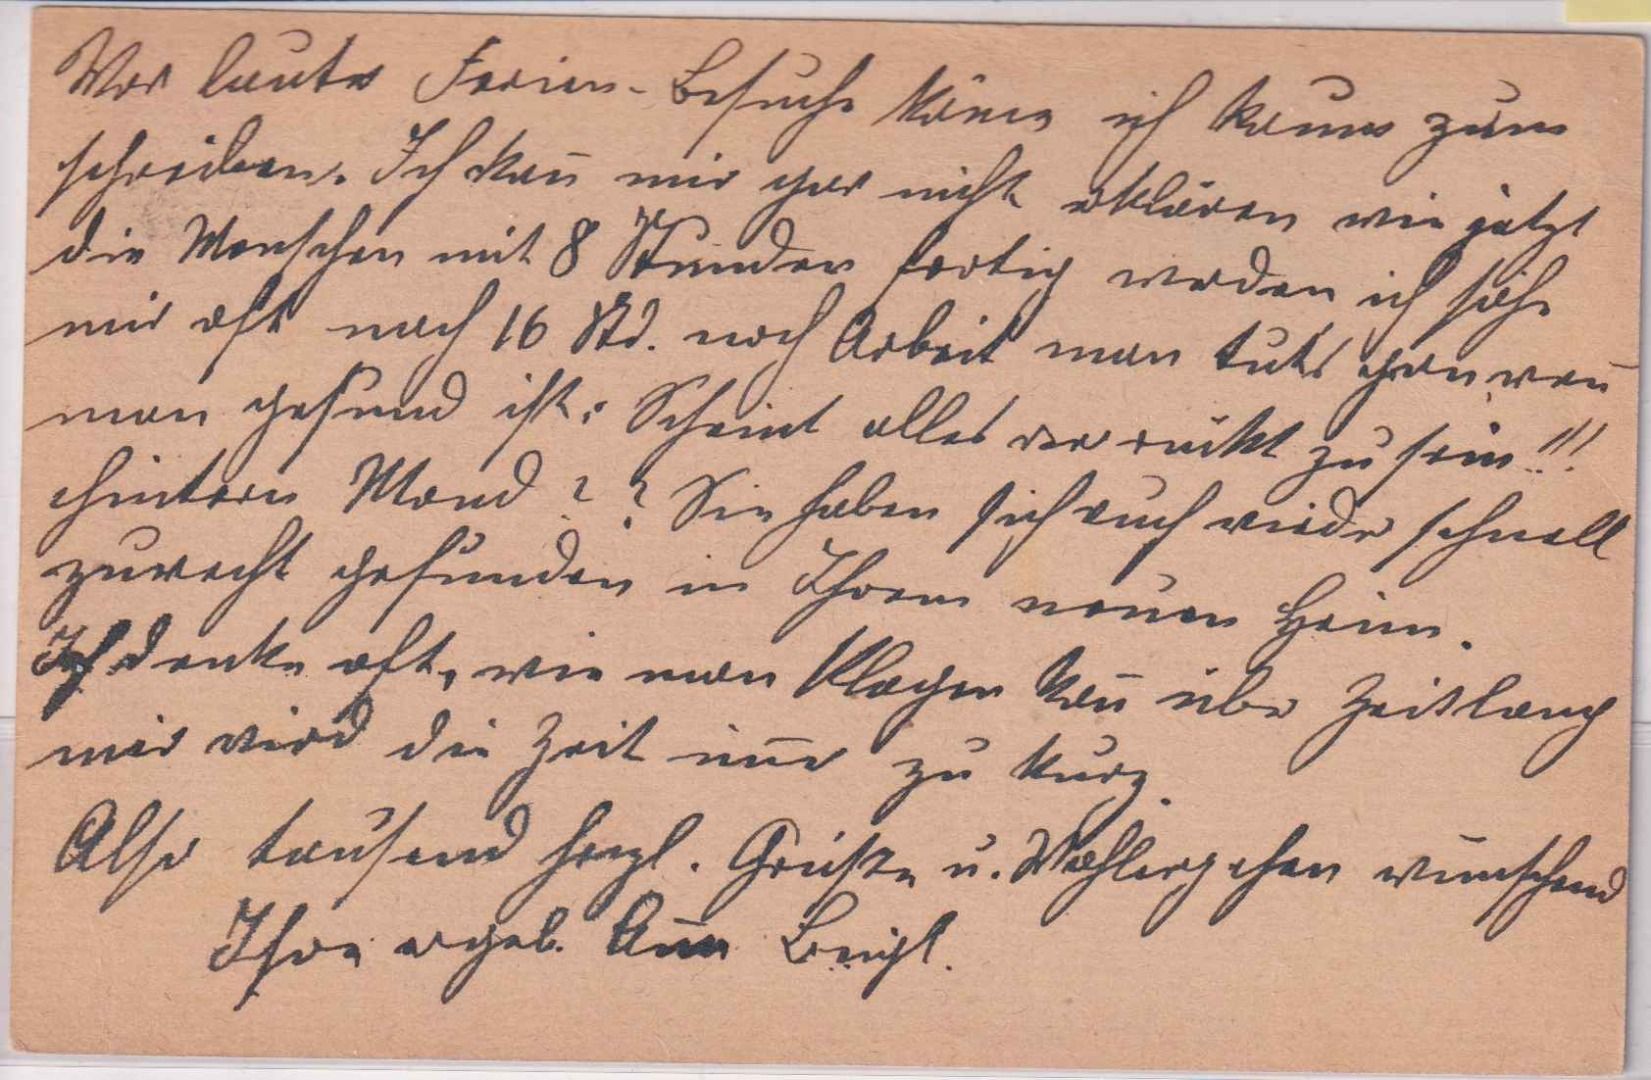 Vor lauter Ferien-Besuche käme ich kaum zum
schreiben. Ich kan̄ mir gar nicht erklären wie jetzt
die Menschen mit 8 Stunden fertig werden ich sehe
mir oft nach 16 Std. noch Arbeit man tuts gern wen̄
man gesund ist. Scheint alles verrückt zu sein!!!
hintern Mond?? Sie haben sich auch wieder schnell
zurecht gefunden in Ihrem neuen Heim.
Ich denke oft, wie man klagen kan̄ über Zeitlang
mir wird die Zeit im̄er zu kurz.
Also tausend herzl. Grüße u. Wohlergehen wünschend
Ihre ergeb. An̄a